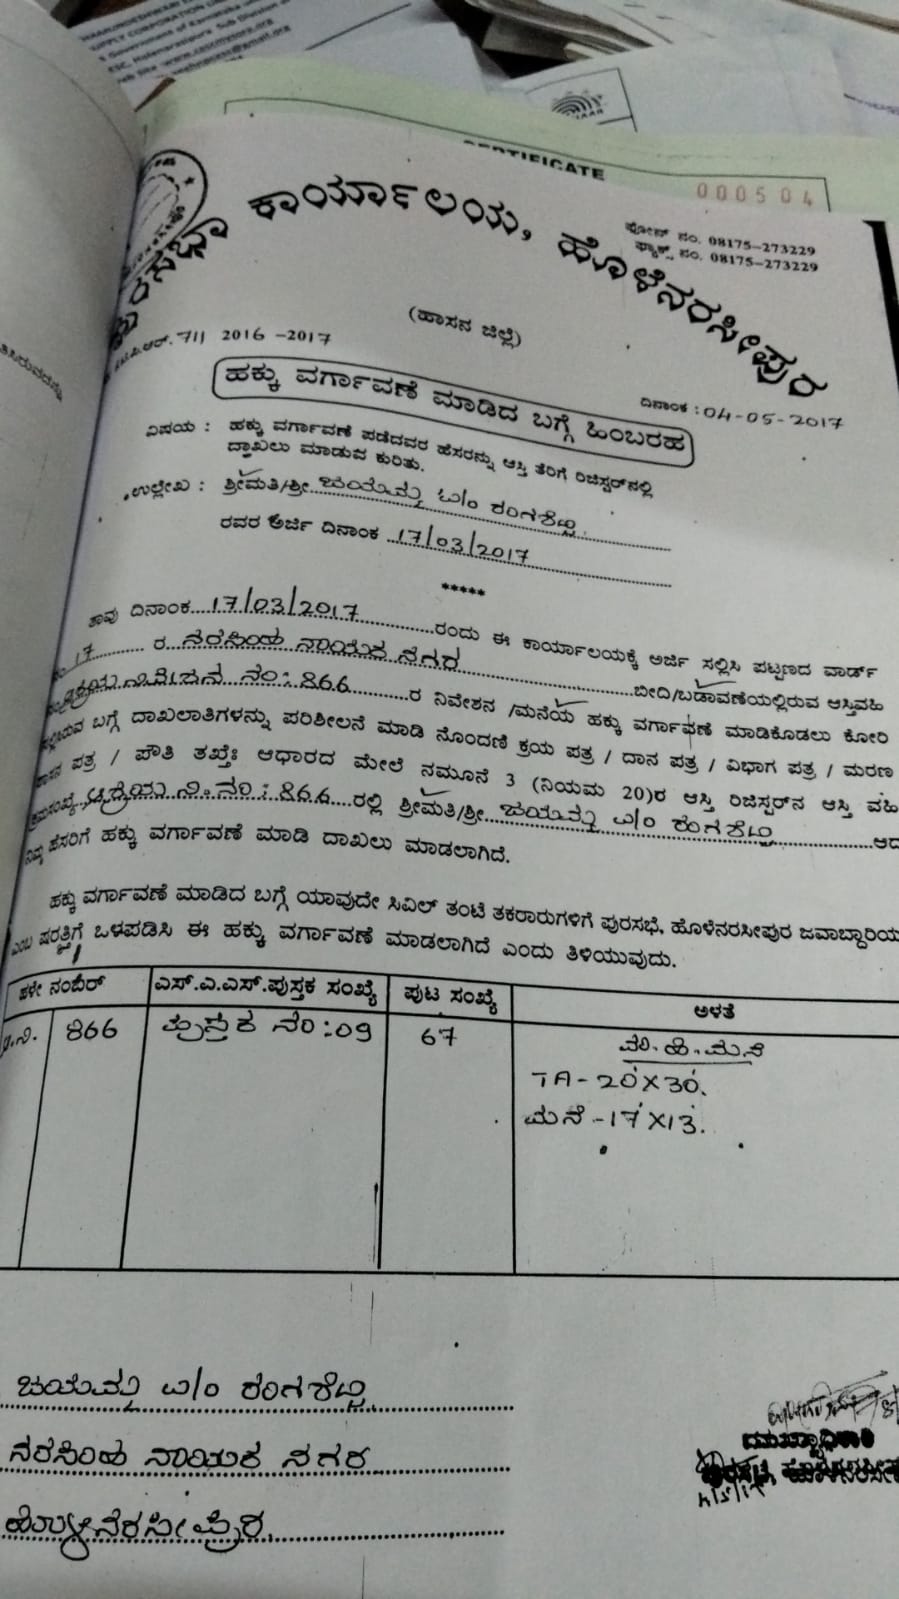 SUPPLY CORPORATION
Government of Karnataka
Sub Division
CERTIFICATE
000504
ಪುರಸಭಾ ಕಾರ್ಯಾಲಯ, ಹೊಳೆನರಸೀಪುರ
ಫೋನ್ ನಂ. 08175-273229
ಫ್ಯಾಕ್ಸ್ ನಂ. 08175-273229
(ಹಾಸನ ಜಿಲ್ಲೆ)
711 2016-2017
ದಿನಾಂಕ : 04-05-2017
ಹಕ್ಕು ವರ್ಗಾವಣೆ ಮಾಡಿದ ಬಗ್ಗೆ ಹಿಂಬರಹ
ವಿಷಯ : ಹಕ್ಕು ವರ್ಗಾವಣೆ ಪಡೆದವರ ಹೆಸರನ್ನು ಆಸ್ತಿ ತೆರಿಗೆ ರಿಜಿಸ್ಟರ್‌ನಲ್ಲಿ
ದಾಖಲು ಮಾಡುವ ಕುರಿತು.
ಉಲ್ಲೇಖ : ಶ್ರೀಮತಿ/ಶ್ರೀ ಜಯಮ್ಮ ಲೇ|ಂ ರಂಗಶೆಟ್ಟಿ
ರವರ ಅರ್ಜಿ ದಿನಾಂಕ 17/03/2017
*****
ತಾವು ದಿನಾಂಕ 17/03/2017 ರಂದು ಈ ಕಾರ್ಯಾಲಯಕ್ಕೆ ಅರ್ಜಿ ಸಲ್ಲಿಸಿ ಪಟ್ಟಣದ ವಾರ್ಡ್
17 ರ ನರಸಿಂಹ ನಾಯಕ ನಗರ ಬೀದಿ/ಬಡಾವಣೆಯಲ್ಲಿರುವ ಆಸ್ತಿವಹಿ
ನಂ: 866 ರ ನಿವೇಶನ /ಮನೆಯ ಹಕ್ಕು ವರ್ಗಾವಣೆ ಮಾಡಿಕೊಡಲು ಕೋರಿ
ಬಗ್ಗೆ ದಾಖಲಾತಿಗಳನ್ನು ಪರಿಶೀಲನೆ ಮಾಡಿ ನೊಂದಣಿ ಕ್ರಯ ಪತ್ರ / ದಾನ ಪತ್ರ / ವಿಭಾಗ ಪತ್ರ / ಮರಣ
ಶಾಸನ ಪತ್ರ / ಪೌತಿ ತಖ್ತೆಃ ಆಧಾರದ ಮೇಲೆ ನಮೂನೆ 3 (ನಿಯಮ 20)ರ ಆಸ್ತಿ ರಿಜಿಸ್ಟರ್‌ನ ಆಸ್ತಿ ವಹಿ
ಕ್ರಮಸಂಖ್ಯೆ ಆಶ್ರಯ ನಿ. ನಂ: 866 ರಲ್ಲಿ ಶ್ರೀಮತಿ/ಶ್ರೀ ಜಯಮ್ಮ ರಂಗಶೆಟ್ಟಿ ಆದ
ನಿಮ್ಮ ಹೆಸರಿಗೆ ಹಕ್ಕು ವರ್ಗಾವಣೆ ಮಾಡಿ ದಾಖಲು ಮಾಡಲಾಗಿದೆ.
ಹಕ್ಕು ವರ್ಗಾವಣೆ ಮಾಡಿದ ಬಗ್ಗೆ ಯಾವುದೇ ಸಿವಿಲ್ ತಂಟೆ ತಕರಾರುಗಳಿಗೆ ಪುರಸಭೆ, ಹೊಳೆನರಸೀಪುರ ಜವಾಬ್ದಾರಿಯ
ಎಂಬ ಷರತ್ತಿಗೆ ಒಳಪಡಿಸಿ ಈ ಹಕ್ಕು ವರ್ಗಾವಣೆ ಮಾಡಲಾಗಿದೆ ಎಂದು ತಿಳಿಯುವುದು.
ಹಳೇ ನಂಬರ್ ಎಸ್.ಎ.ಎಸ್.ಪುಸ್ತಕ ಸಂಖ್ಯೆ ಪುಟ ಸಂಖ್ಯೆ ಅಳತೆ
866 ಪುಸ್ತಕ ನಂ:09 67
TA-20'X30'.
ಮನೆ-17'X13'.
ಜಯಮ್ಮ ರಂಗಶೆಟ್ಟಿ
ನರಸಿಂಹ ನಾಯಕ ನಗರ
ಹೊಳೆನರಸೀಪುರ.
ಮುಖ್ಯಾಧಿಕಾರಿ